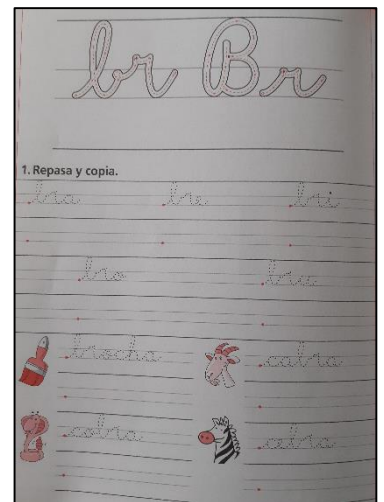 br Br
1. Repasa y copia.
bra bre bri
bro bru
brocha cabra
cobra cebra